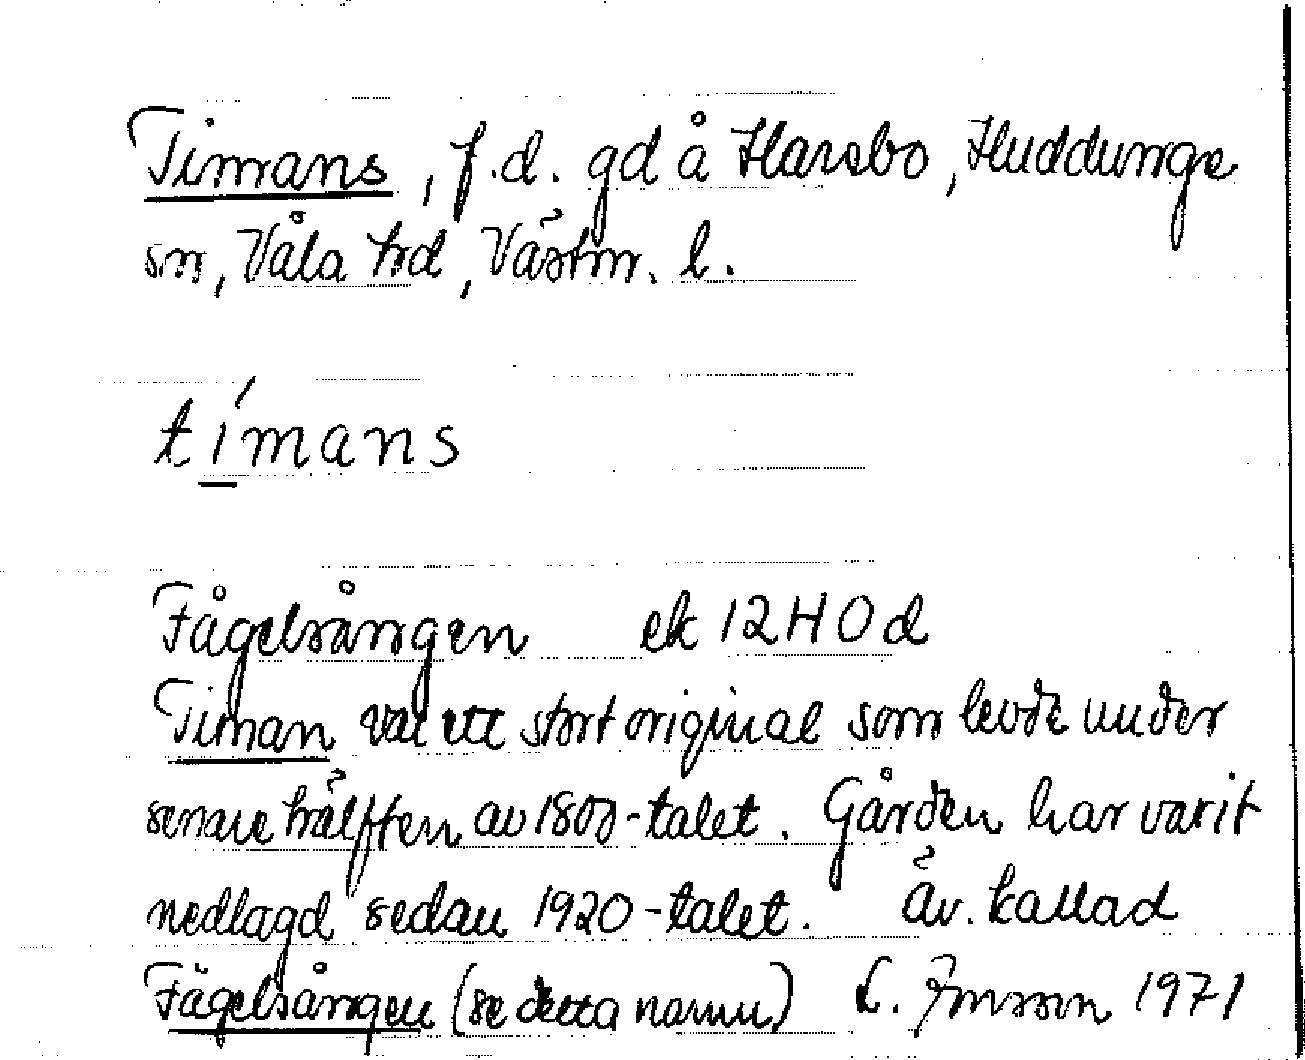 Timans, f.d. gd å Harsbo, Huddunge
sn, Våla hd, Västm. l.
tímans
Fågelsången ek 12H0d
Timan var ett stort original som levde under
senare hälften av 1800-talet. Gården har varit
nedlagd sedan 1920-talet. Äv. kallad
Fågelsången (se detta namn) 1971